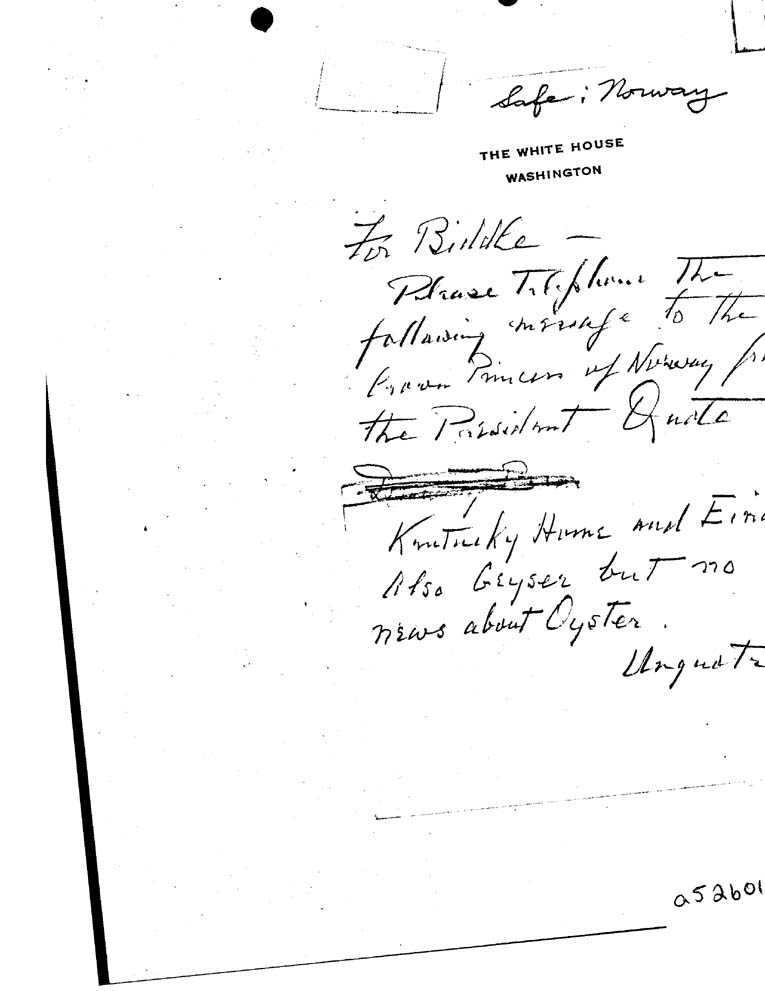 Safe: Norway
THE WHITE HOUSE
WASHINGTON
For Biddle —
Please Telephone The
following message to the
Crown Princess of Norway
the President Quote
Kentucky Home and
Also Geyser but no
news about Oyster.
Unquote
a52b01